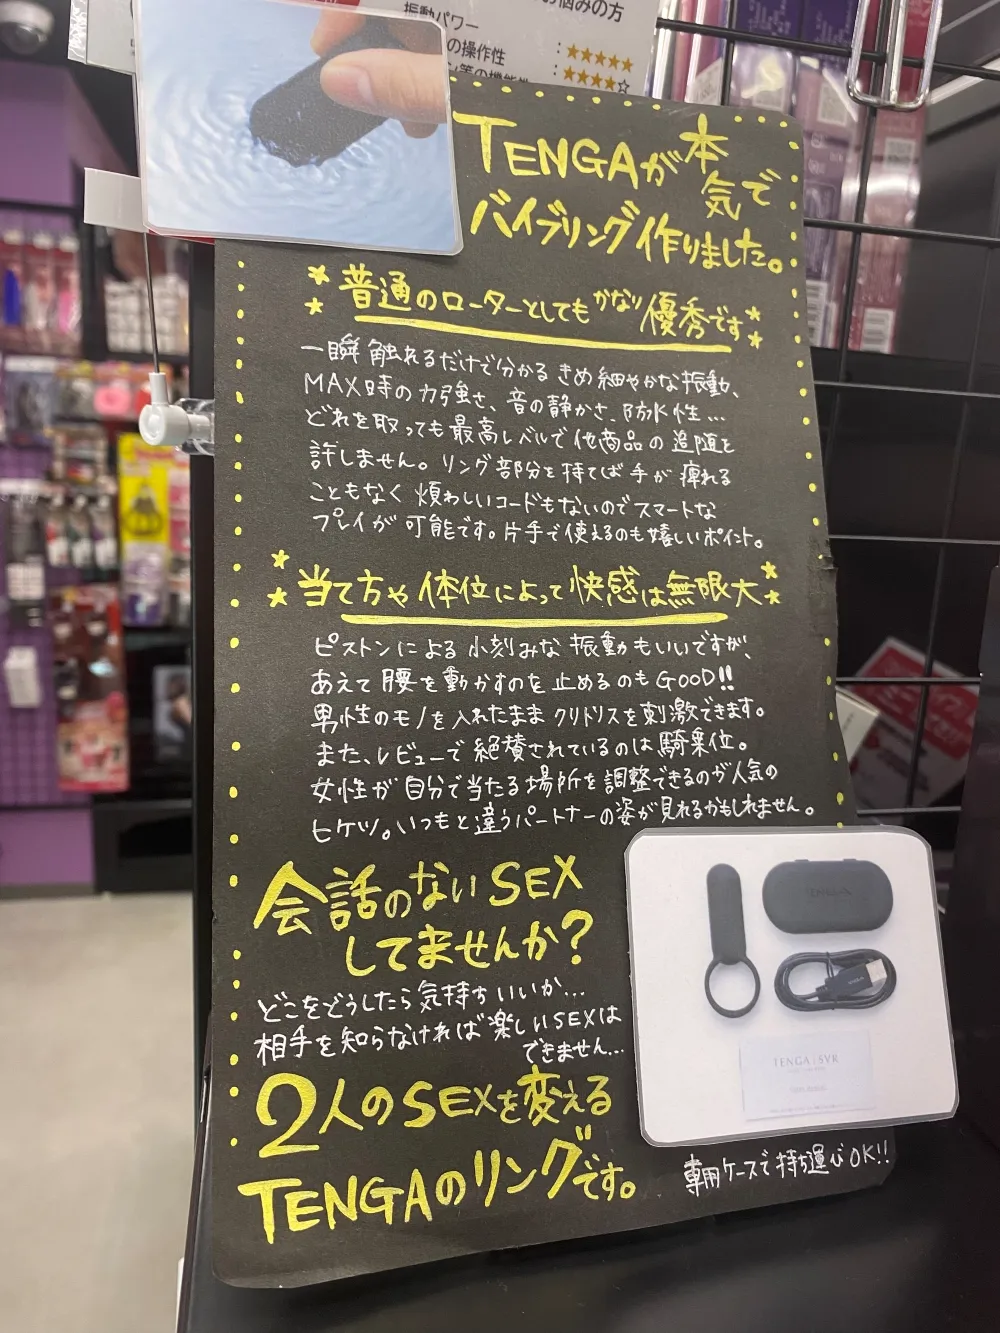 振動パワー
お悩みの方
の操作性 : ★★★★★
: ★★★★☆
TENGAが本気で
バイブリング作りました。
★★普通のローターとしてもかなり優秀です★★
一瞬触れるだけで分かるきめ細やかな振動、
MAX時の力強さ、音の静かさ、防水性…
どれを取っても最高レベルで他商品の追随を
許しません。リング部分を持てば手が痺れる
こともなく煩わしいコードもないのでスマートな
プレイが可能です。片手で使えるのも嬉しいポイント。
★★当て方や体位によって快感は無限大★★
ピストンによる小刻みな振動もいいですが、
あえて腰を動かすのを止めるのもGOOD!!
男性のモノを入れたままクリトリスを刺激できます。
また、レビューで絶賛されているのは騎乗位。
女性が自分で当たる場所を調整できるのが人気の
ヒケツ。いつもと違うパートナーの姿が見れるかもしれません。
会話のないSEX
してませんか?
どこをどうしたら気持ちいいか…
相手を知らなければ楽しいSEXは
できません…
2人のSEXを変える
TENGAのリングです。
TENGA
TENGA SVR
専用ケースで持ち運びOK!!